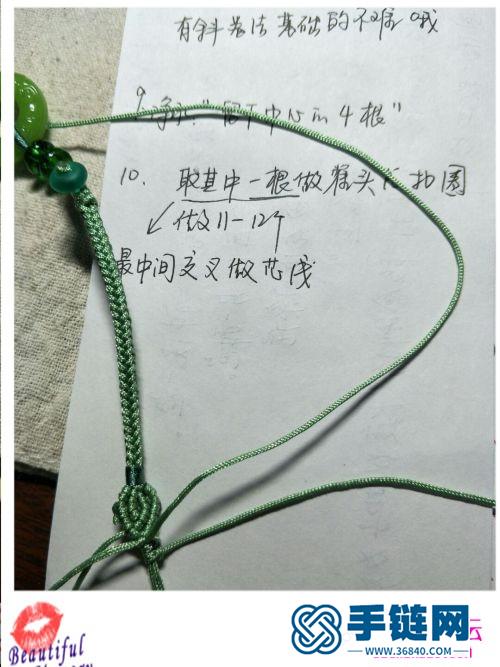 有斜卷法基础的不难哦
9.
中心的4根"
10. 取其中一根做雀头结扣圈
做11-12个
最中间交叉做芯线
Beautiful
手链网
WWW.36840.COM
坛